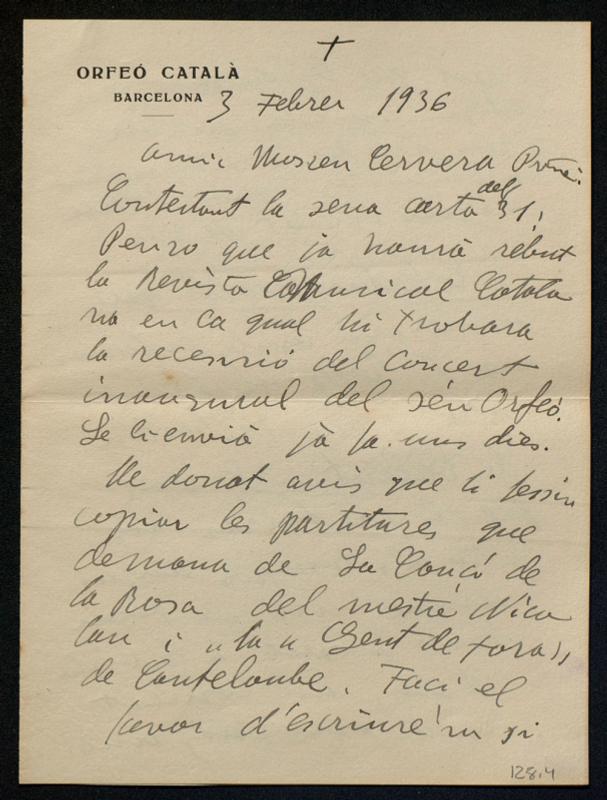 +
ORFEÓ CATALÀ
BARCELONA 3 Febrer 1936
Amic Mossen Cervera Prve.
Contestant la seva carta del 31,
Penso que ja haurà rebut
la Revista Musical Catala
na en la qual hi trobara
la recessió del Concert
inaugural del séu Orfeó.
Se li envià jà fa uns dies.
He donat avis que li fessin
copiar les partitures que
demana de La Cançó de
la Rosa del mestre Nico
lau i "La Gent de fora"
de Canteloube. Faci el
favor d'escriure'm si
128.4